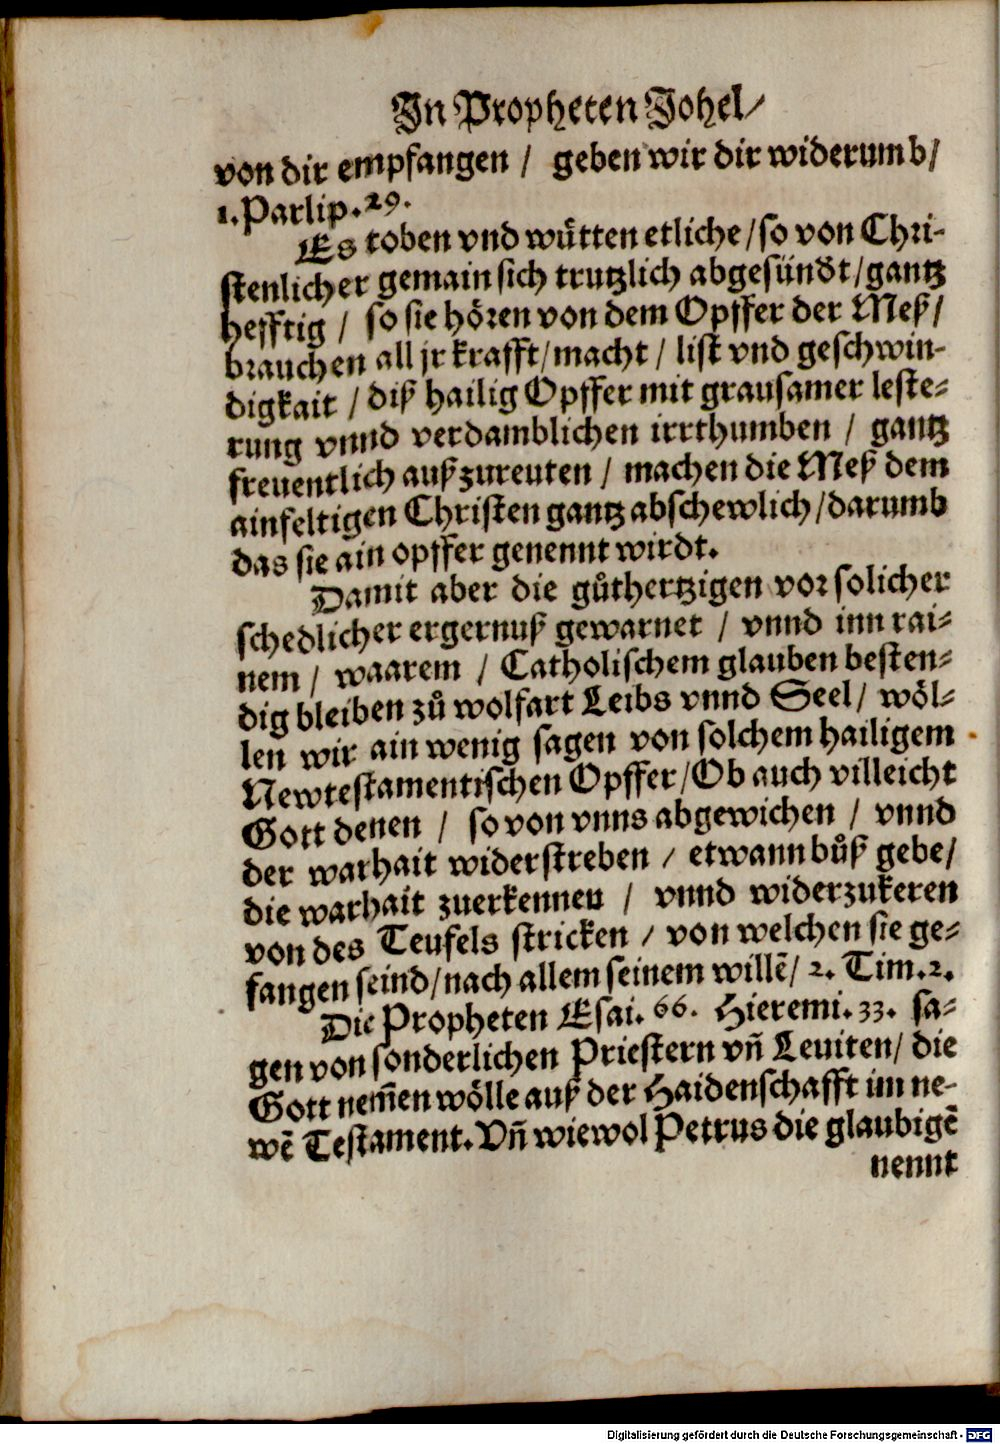 In Propheten Johel/
von dir empfangen / geben wir dir widerumb/
1. Parlip. 29.
Es toben vnd wuͤtten etliche / so von Chri-
stenlicher gemain sich trutzlich abgesündt / gantz
hefftig / so sie hoͤren von dem Opffer der Meß /
brauchen all jr krafft / macht / list vnd geschwin-
digkait / diß hailig Opffer mit grausamer leste-
rung vnnd verdamblichen irrthumben / gantz
freuentlich außzureuten / machen die Meß dem
ainfeltigen Christen gantz abschewlich / darumb
das sie ain opffer genennt wirdt.
Damit aber die guͦthertzigen vor solicher
schedlicher ergernuß gewarnet / vnnd inn rai-
nem / waarem / Catholischem glauben besten-
dig bleiben zuͦ wolfart Leibs vnnd Seel / woͤl-
len wir ain wenig sagen von solchem hailigem
Newtestamentischen Opffer / Ob auch villeicht
Gott denen / so von vnns abgewichen / vnnd
der warhait widerstreben / etwann buͦß gebe /
die warhait zuerkennen / vnnd widerzukeren
von des Teufels stricken / von welchen sie ge-
fangen seind / nach allem seinem willē / 2. Tim. 2.
Die Propheten Esai. 66. Hieremi. 33. sa-
gen von sonderlichen Priestern vñ Leuiten / die
Gott nem̄en woͤlle auß der Haidenschafft im ne-
wē Testament. Vñ wiewol Petrus die glaubigē
nennt
Digitalisierung gefördert durch die Deutsche Forschungsgemeinschaft - DFG